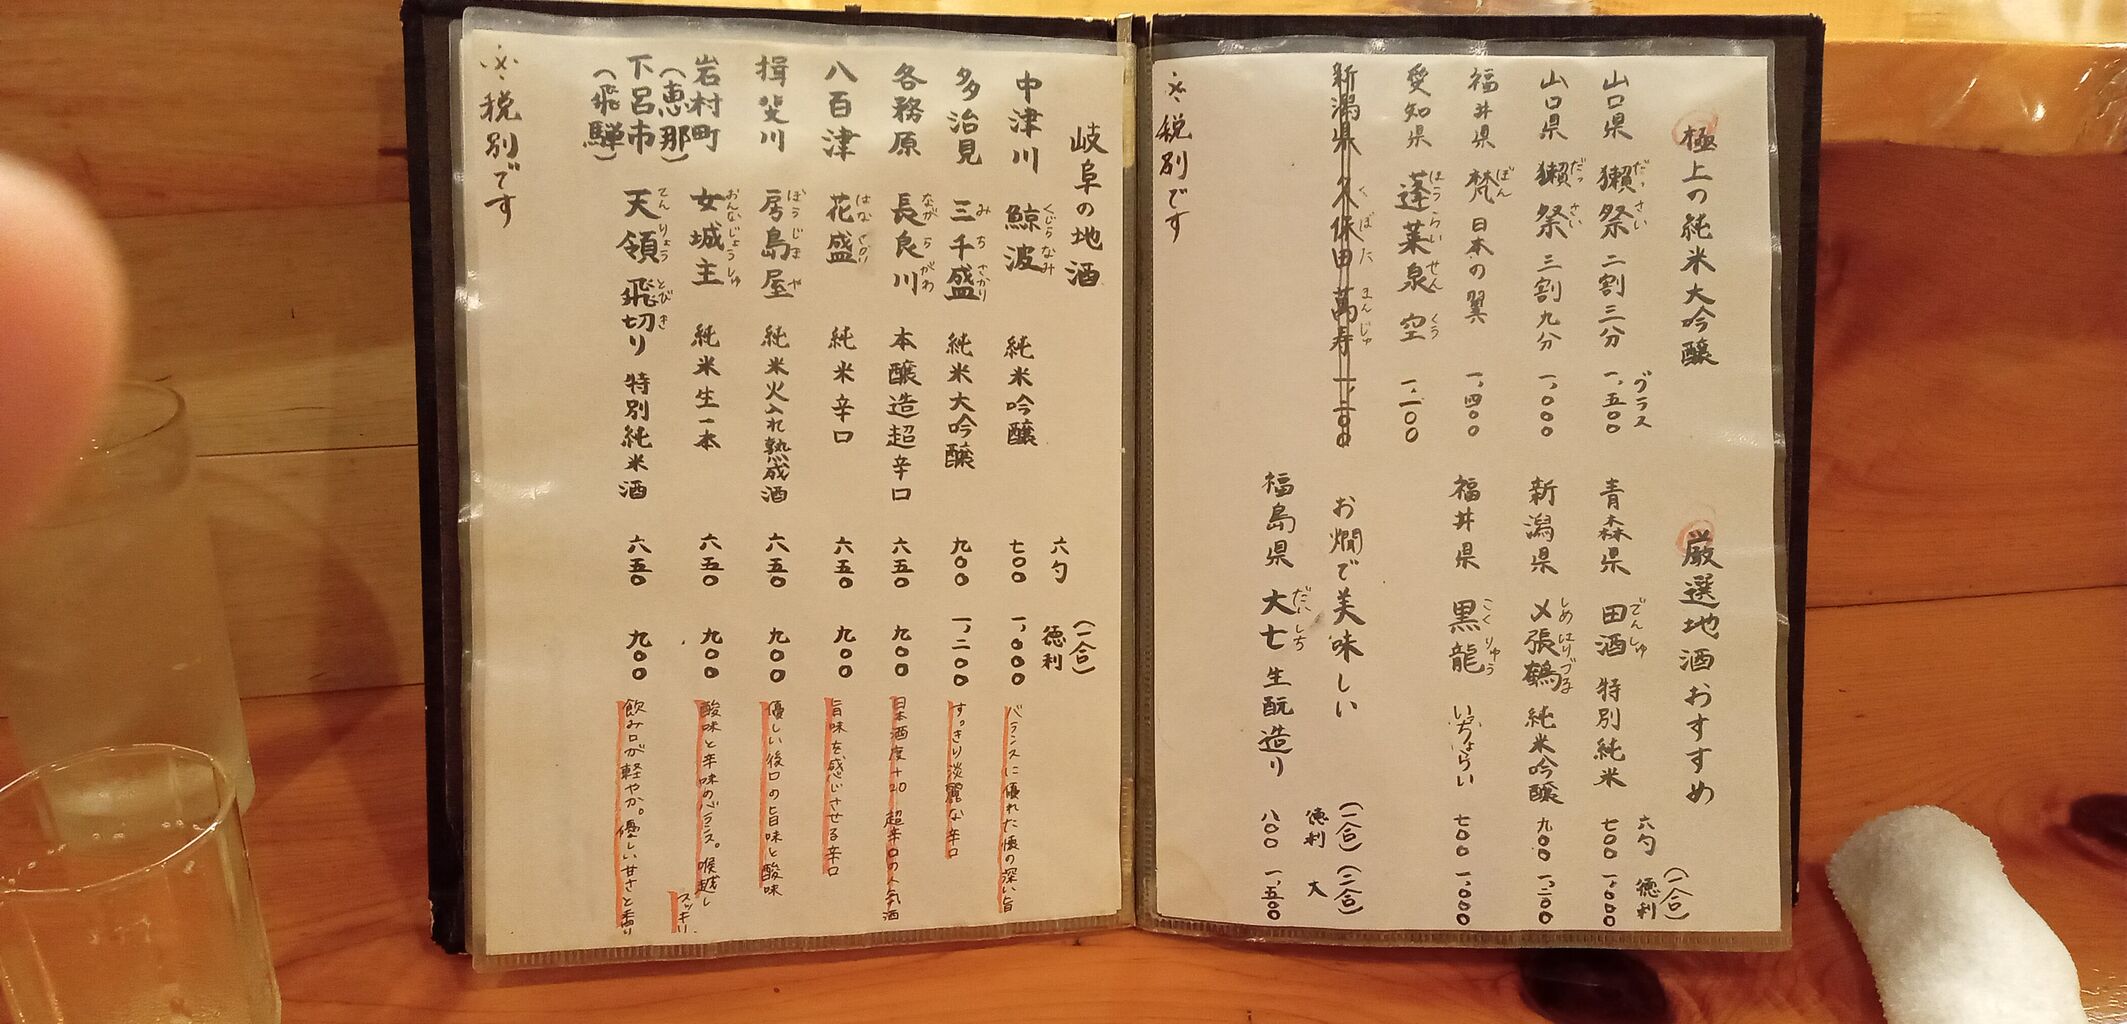 極上の純米大吟醸
グラス
山口県 獺祭 だっさい 二割三分 一、五〇〇
山口県 獺祭 だっさい 三割九分 一、〇〇〇
福井県 梵 ぼん 日本の翼 一、四〇〇
愛知県 蓬莱泉 空 ほうらいせん くう 一、一〇〇
新潟県 久保田 萬寿 くぼた まんじゅ 一、二〇〇
厳選地酒おすすめ
六勺 徳利(一合)
青森県 田酒 でんしゅ 特別純米 七〇〇 一、〇〇〇
新潟県 〆張鶴 しめはりづる 純米吟醸 九〇〇 一、二〇〇
福井県 黒龍 こくりゅう いっちょらい 七〇〇 一、〇〇〇
お燗で美味しい
徳利(一合) 大(二合)
福島県 大七 だいしち 生酛造り 八〇〇 一、五〇〇
※税別です
岐阜の地酒
六勺 徳利(一合)
中津川 鯨波 くじらなみ 純米吟醸 七〇〇 一、〇〇〇 バランスに優れた懐の深い旨
多治見 三千盛 みちさかり 純米大吟醸 九〇〇 一、二〇〇 すっきり淡麗な辛口
各務原 長良川 ながらがわ 本醸造超辛口 六五〇 九〇〇 日本酒度+20 超辛口の人気酒
八百津 花盛 はなざかり 純米辛口 六五〇 九〇〇 旨味を感じさせる辛口
揖斐川 房島屋 ぼうじまや 純米火入れ熟成酒 六五〇 九〇〇 優しい後口の旨味と酸味
岩村町(恵那) 女城主 おんなじょうしゅ 純米生一本 六五〇 九〇〇 酸味と辛味のバランス。喉越しスッキリ
下呂市(飛騨) 天領 飛切り てんりょう とびきり 特別純米酒 六五〇 九〇〇 飲み口が軽やか。優しい甘さと香り
※税別です